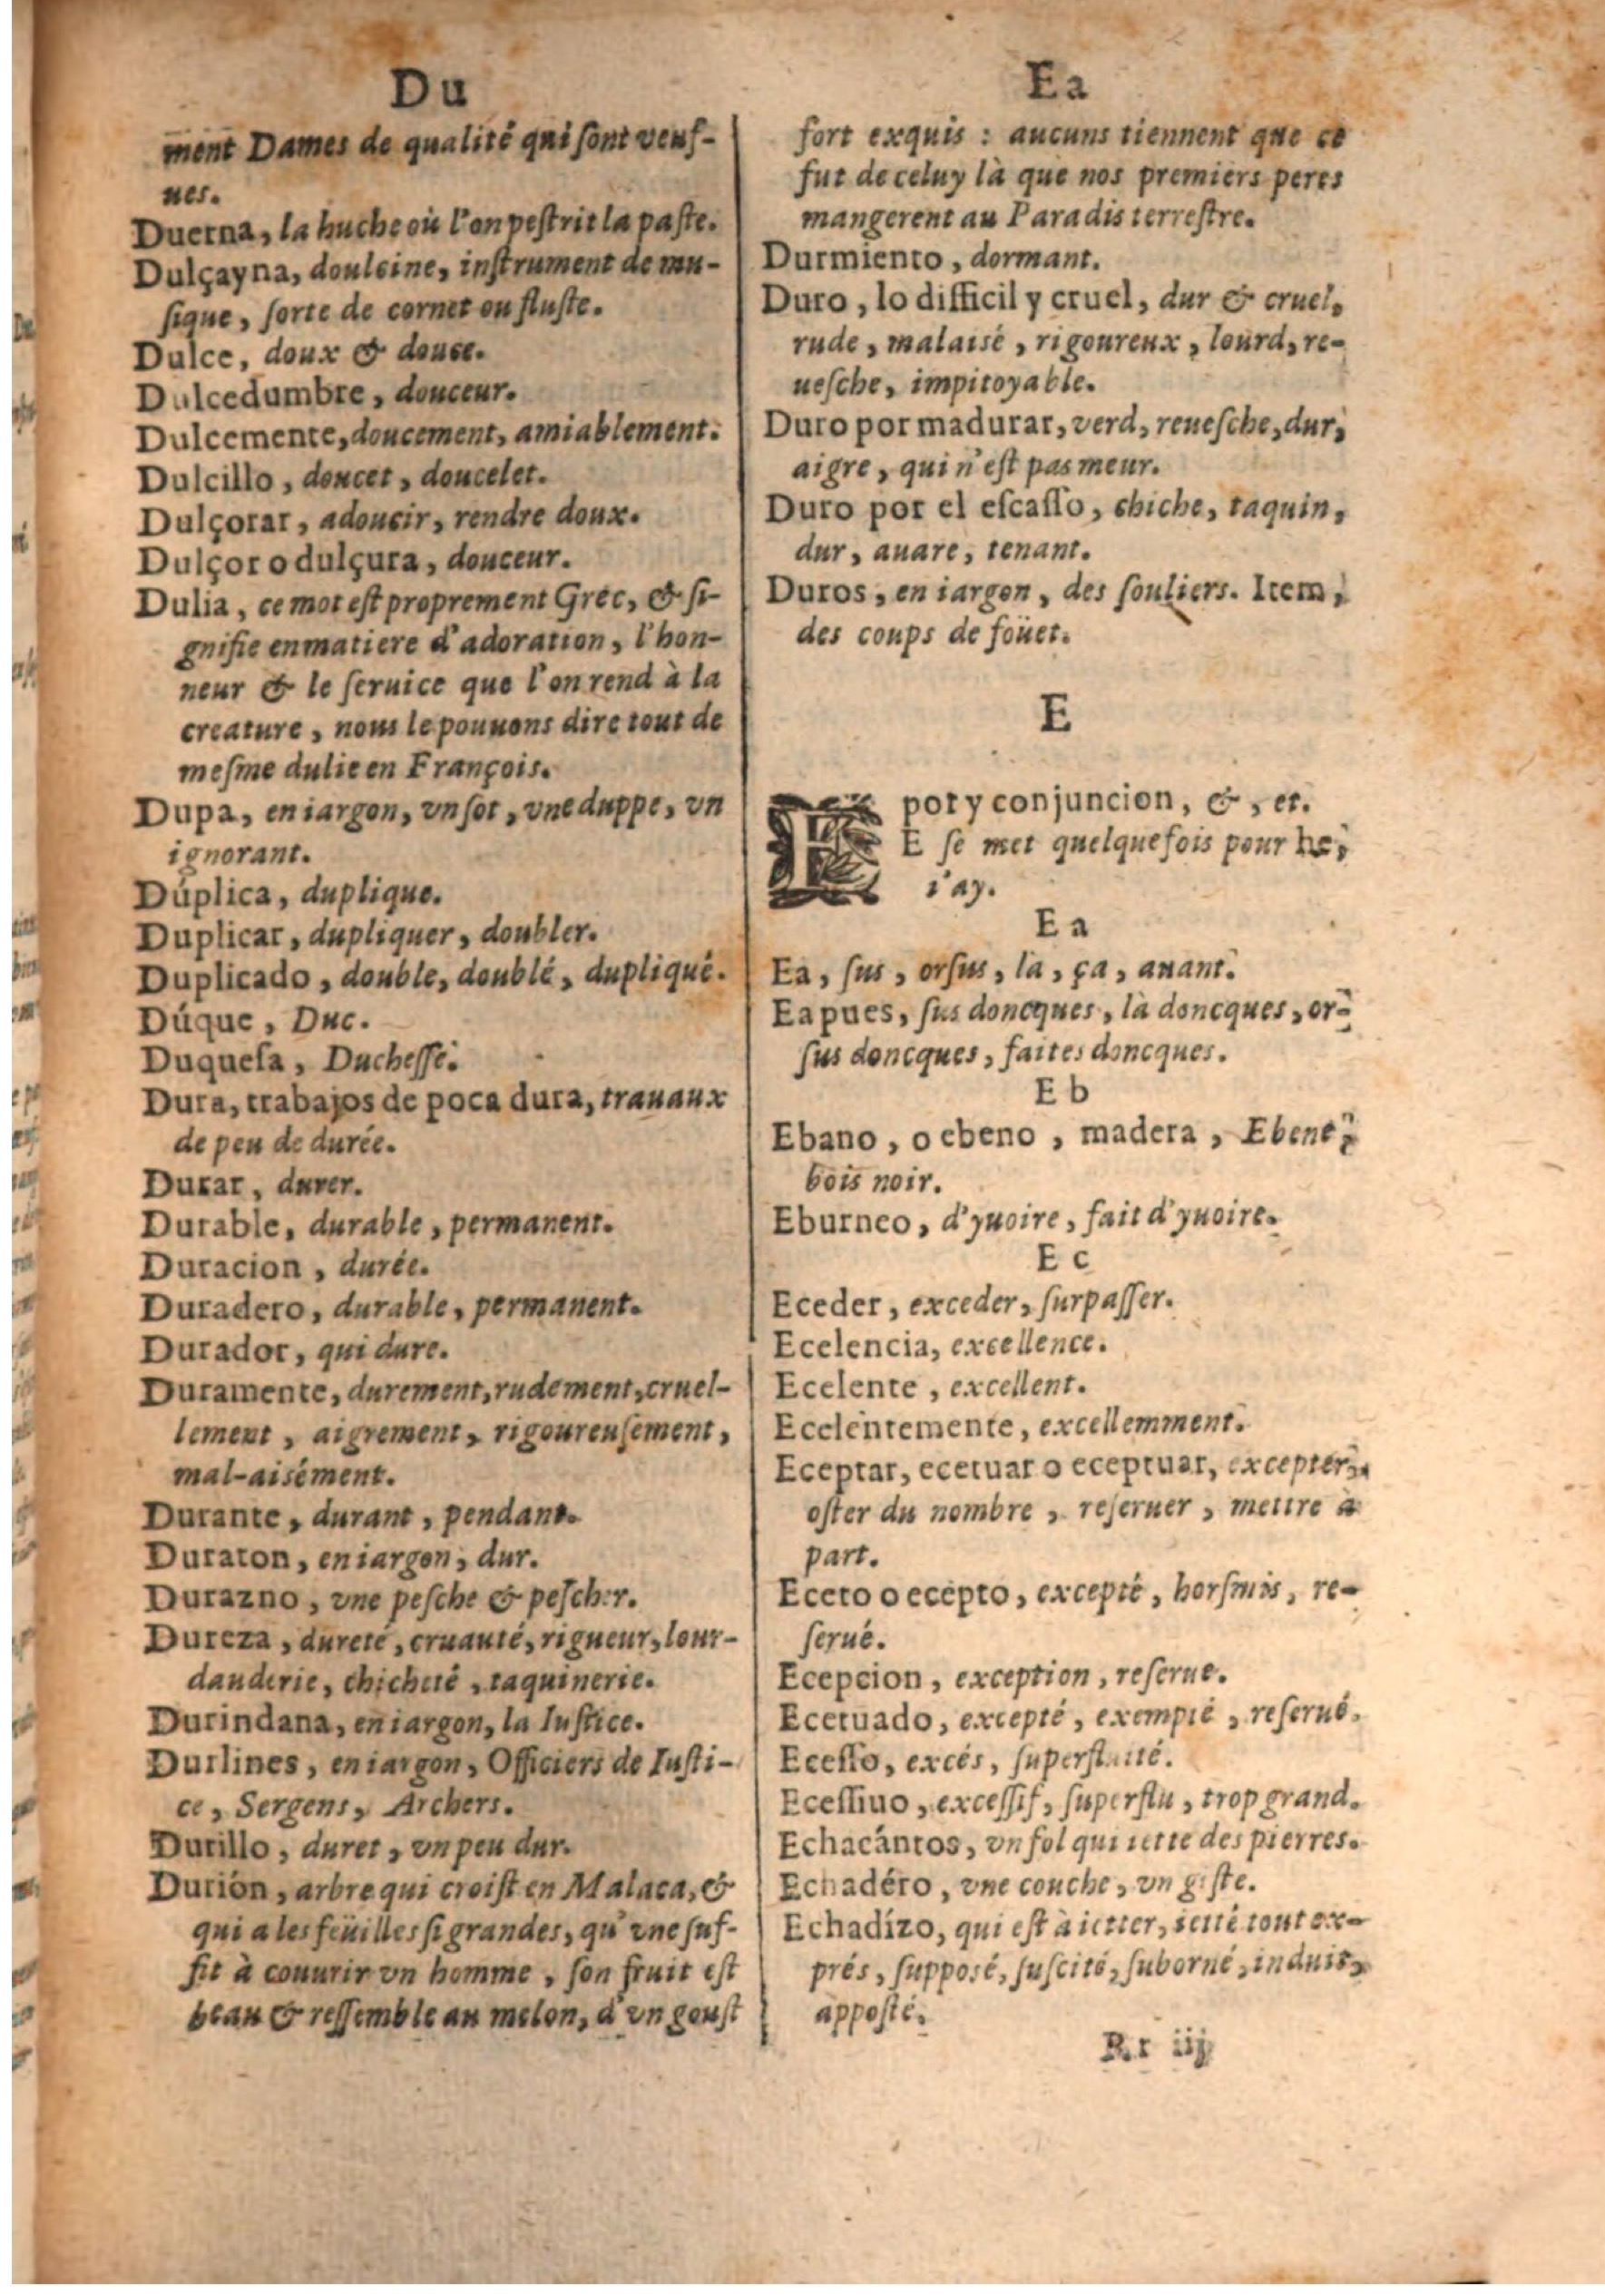 Du
ment Dames de qualité qui ſont veuf-
ues.
Duerna, la huche où l'on peſtrit la paſte.
Dulçayna, doulcine, inſtrument de mu-
ſique, ſorte de cornet ou fluſte.
Dulce, doux & douce.
Dulcedumbre, douceur.
Dulcemente, doucement, amiablement.
Dulcillo, doucet, doucelet.
Dulçorar, adoucir, rendre doux.
Dulçor o dulçura, douceur.
Dulia, ce mot eſt proprement Grec, & ſi-
gnifie en matiere d'adoration, l'hon-
neur & le ſeruice que l'on rend à la
creature, nous le pouuons dire tout de
meſme dulie en François.
Dupa, en iargon, vn ſot, vne duppe, vn
ignorant.
Dúplica, duplique.
Duplicar, dupliquer, doubler.
Duplicado, double, doublé, dupliqué.
Dúque, Duc.
Duqueſa, Ducheſſe.
Dura, trabajos de poca dura, trauaux
de peu de durée.
Durar, durer.
Durable, durable, permanent.
Duracion, durée.
Duradero, durable, permanent.
Durador, qui dure.
Duramente, durement, rudement, cruel-
lement, aigrement, rigoureuſement,
mal-aisément.
Durante, durant, pendant.
Duraton, en iargon, dur.
Durazno, vne peſche & peſcher.
Dureza, dureté, cruauté, rigueur, lour-
dauderie, chicheté, taquinerie.
Durindana, en iargon, la Iuſtice.
Durlines, en iargon, Officiers de Iuſti-
ce, Sergens, Archers.
Durillo, duret, vn peu dur.
Durión, arbre qui croiſt en Malaca, &
qui a les feüilles ſi grandes, qu'vne ſuf-
fit à couurir vn homme, ſon fruit eſt
beau & reſſemble au melon, d'vn gouſt
Ea
fort exquis : aucuns tiennent que ce
fut de celuy là que nos premiers peres
mangerent au Paradis terreſtre.
Durmiento, dormant.
Duro, lo difficil y cruel, dur & cruel,
rude, malaisé, rigoureux, lourd, re-
ueſche, impitoyable.
Duro por madurar, verd, reueſche, dur,
aigre, qui n'eſt pas meur.
Duro por el eſcaſſo, chiche, taquin,
dur, auare, tenant.
Duros, en iargon, des ſouliers. Item,
des coups de foüet.
E
E por y conjuncion, &, et.
E ſe met quelquefois pour he,
i'ay.
Ea
Ea, ſus, orſus, là, ça, auant.
Ea pues, ſus doncques, là doncques, or-
ſus doncques, faites doncques.
Eb
Ebano, o ebeno, madera, Ebene,
bois noir.
Eburneo, d'yuoire, fait d'yuoire.
Ec
Eceder, exceder, ſurpaſſer.
Ecelencia, excellence.
Ecelente, excellent.
Ecelentemente, excellemment.
Eceptar, ecetuar o eceptuar, excepter,
oſter du nombre, reſeruer, mettre à
part.
Eceto o ecepto, excepté, horſmis, re-
ſerué.
Ecepcion, exception, reſerue.
Ecetuado, excepté, exempté, reſerué.
Eceſſo, excés, ſuperfluité.
Eceſſiuo, exceſſif, ſuperflu, trop grand.
Echacántos, vn fol qui iette des pierres.
Echadéro, vne couche, vn giſte.
Echadízo, qui eſt à ietter, ietté tout ex-
prés, ſupposé, ſuſcité, ſuborné, induit,
appoſté.
Rr iij